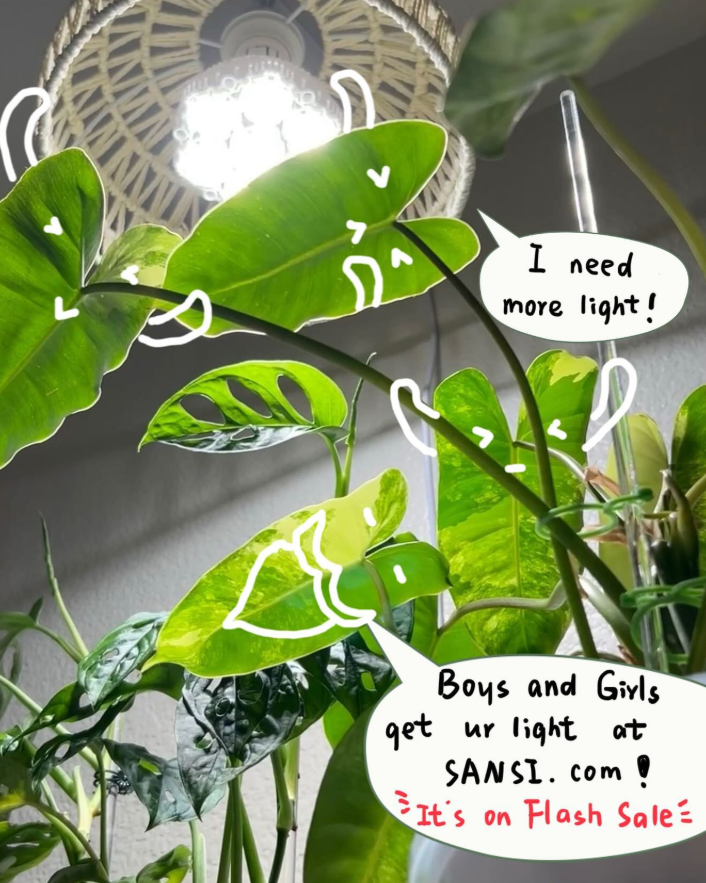 I need
more light!
Boys and Girls
get ur light at
SANSI.com!
It's on Flash Sale